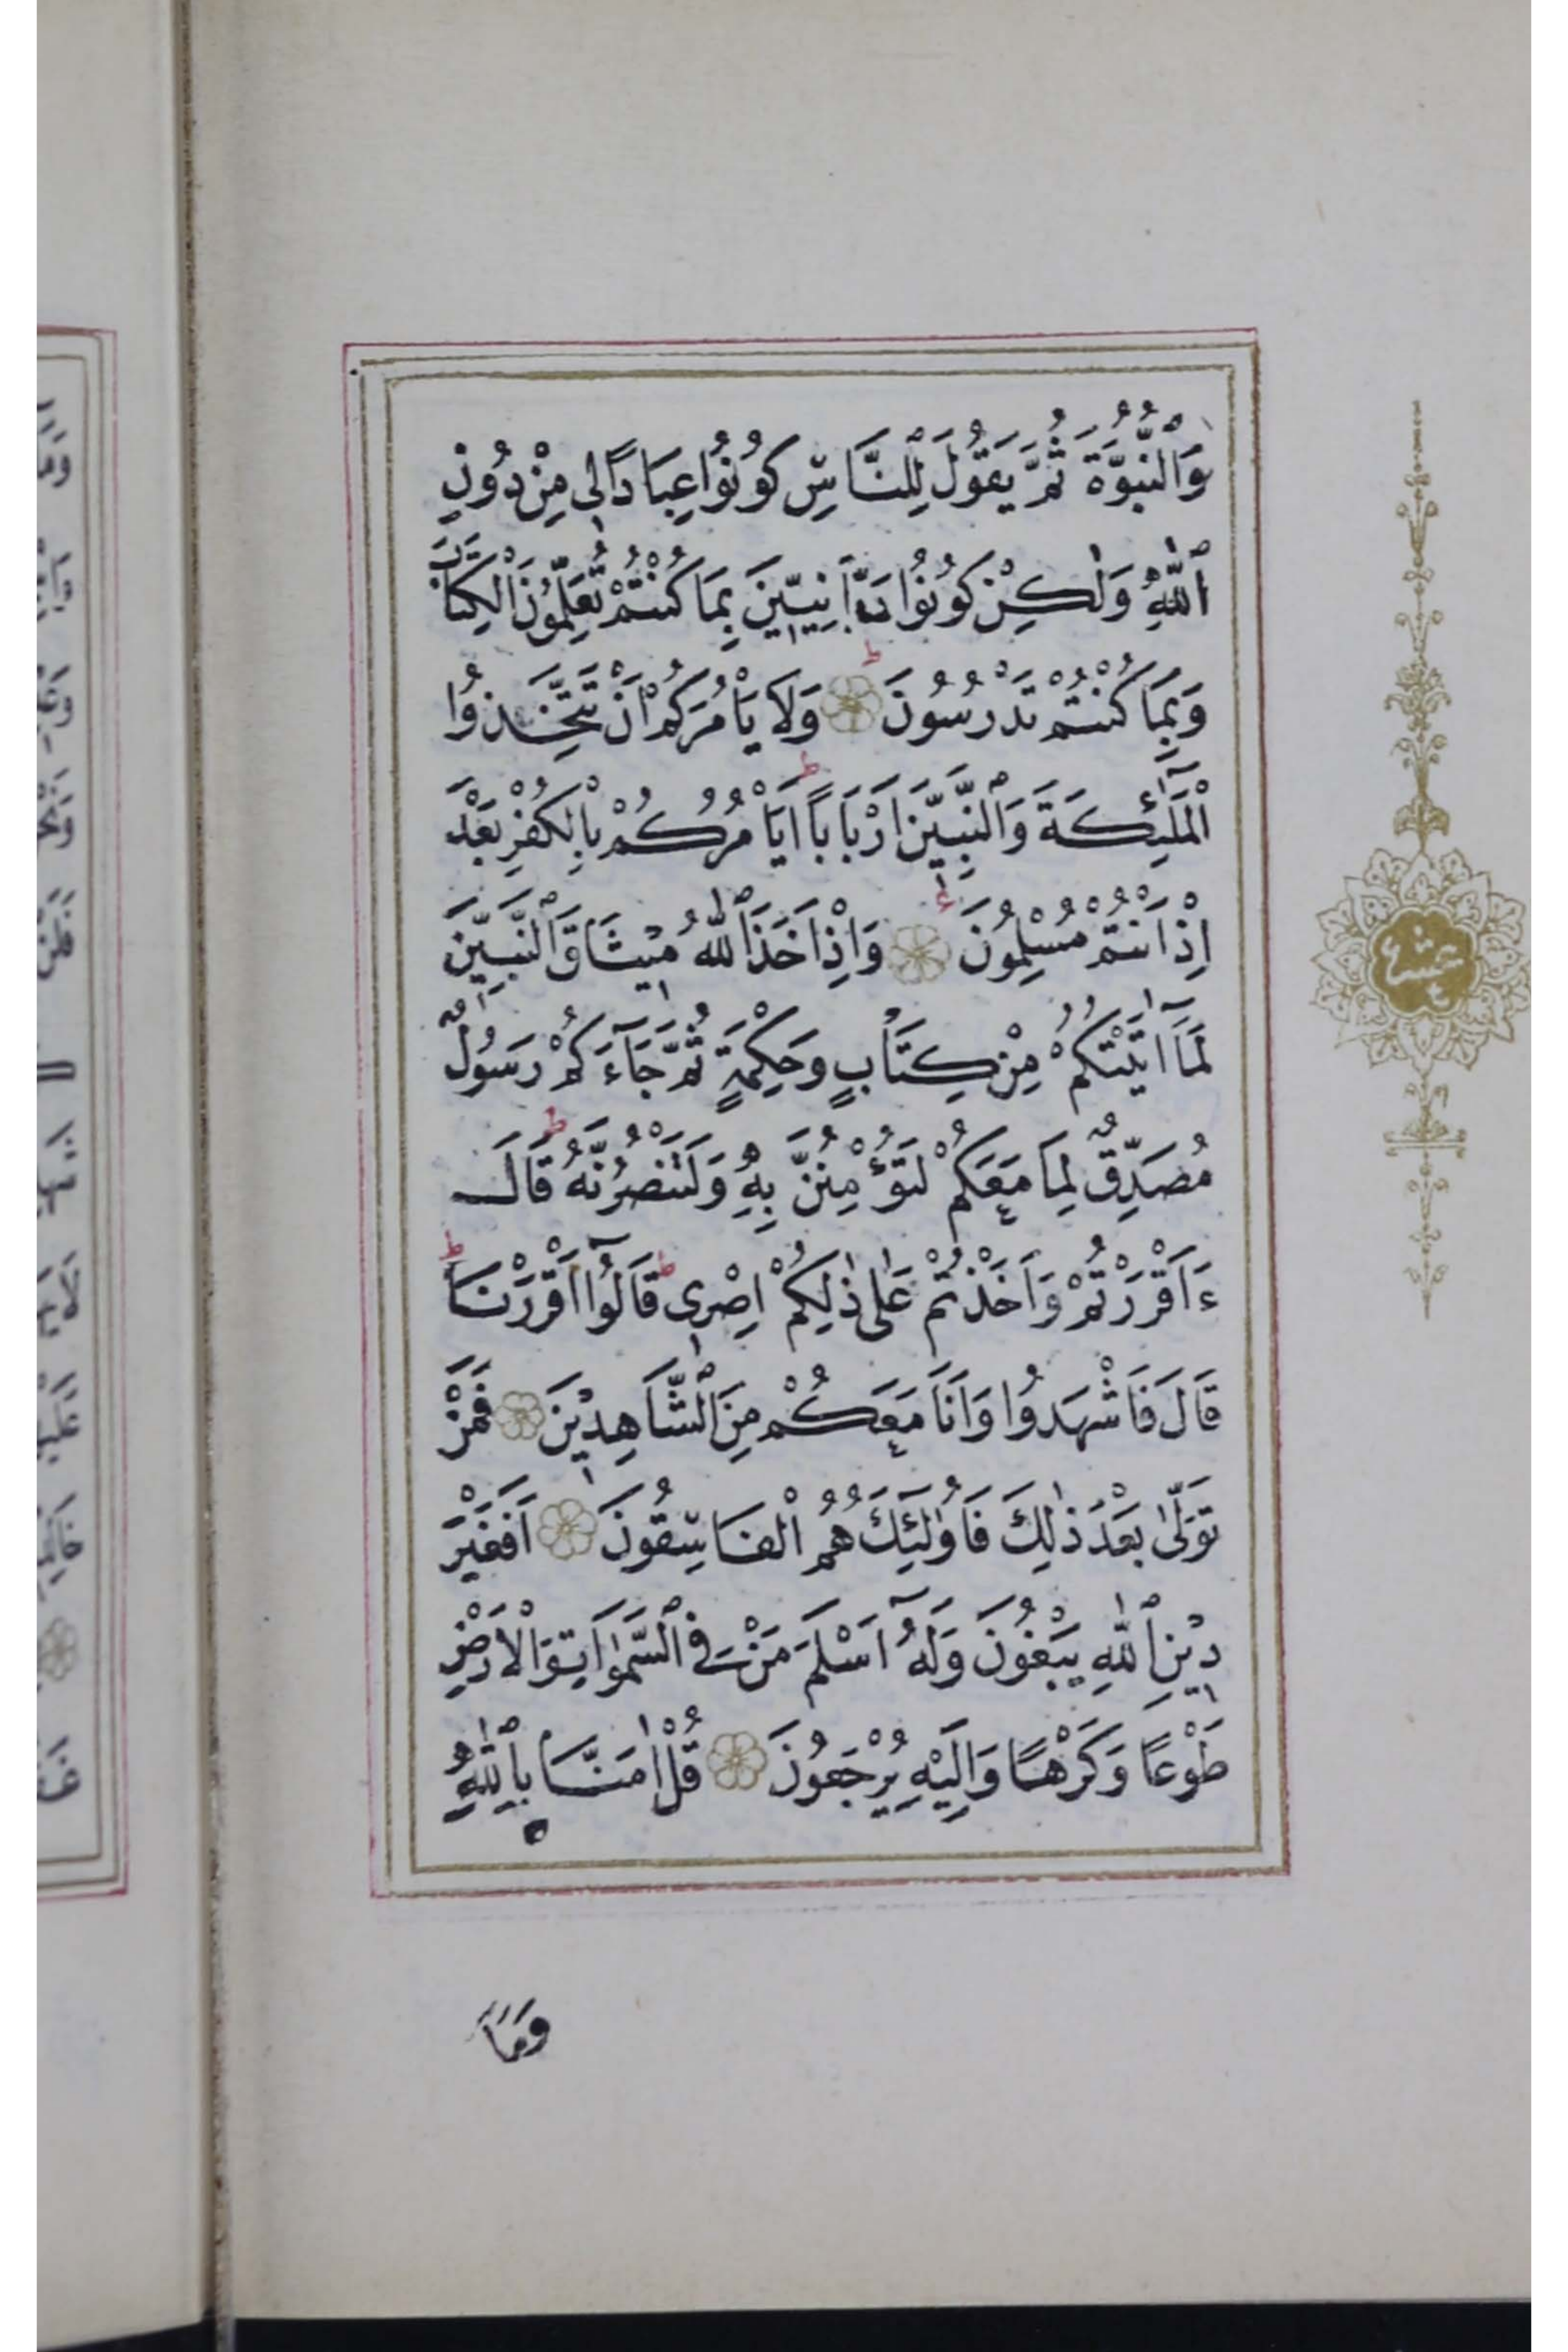 وَالنُّبُوَّةَ ثُمَّ يَقُولَ لِلنَّاسِ كُونُوا عِبَادًا لِي مِنْ دُونِ
اللّٰهِ وَلٰكِنْ كُونُوا رَبَّانِيّٖينَ بِمَا كُنْتُمْ تُعَلِّمُونَ الْكِتَابَ
وَبِمَا كُنْتُمْ تَدْرُسُونَ وَلَا يَأْمُرَكُمْ اَنْ تَتَّخِذُوا
الْمَلٰٓئِكَةَ وَالنَّبِيّٖنَ اَرْبَابًا اَيَأْمُرُكُمْ بِالْكُفْرِ بَعْدَ
اِذْ اَنْتُمْ مُسْلِمُونَ وَاِذْ اَخَذَ اللّٰهُ مٖيثَاقَ النَّبِيّٖنَ
لَمَٓا اٰتَيْتُكُمْ مِنْ كِتَابٍ وَحِكْمَةٍ ثُمَّ جَٓاءَكُمْ رَسُولٌ
مُصَدِّقٌ لِمَا مَعَكُمْ لَتُؤْمِنُنَّ بِهٖ وَلَتَنْصُرُنَّهُ قَالَ
ءَاَقْرَرْتُمْ وَاَخَذْتُمْ عَلٰى ذٰلِكُمْ اِصْرٖى قَالُٓوا اَقْرَرْنَا
قَالَ فَاشْهَدُوا وَاَنَا مَعَكُمْ مِنَ الشَّاهِدٖينَ فَمَنْ
تَوَلّٰى بَعْدَ ذٰلِكَ فَاُولٰٓئِكَ هُمُ الْفَاسِقُونَ اَفَغَيْرَ
دٖينِ اللّٰهِ يَبْغُونَ وَلَهُٓ اَسْلَمَ مَنْ فِي السَّمٰوَاتِ وَالْاَرْضِ
طَوْعًا وَكَرْهًا وَاِلَيْهِ يُرْجَعُونَ قُلْ اٰمَنَّا بِاللّٰهِ
وَمَٓا